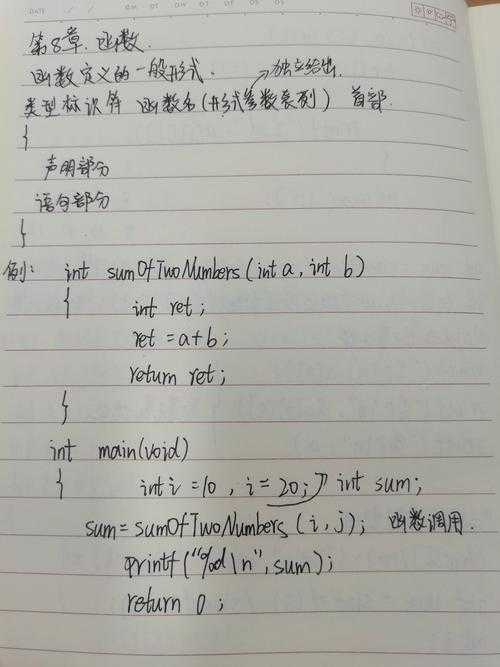 第8章. 函数.
函数定义的一般形式. →独立给出.
类型标识符 函数名(形式参数系列) 首部.
{
声明部分
语句部分
}
例: int sumOfTwoNumbers(int a, int b)
{ int ret;
ret = a+b;
return ret;
}
int main(void)
{ int i = 10, i = 20; int sum;
sum = sumOfTwoNumbers(i, j); 函数调用.
printf("%d\n", sum);
return 0;